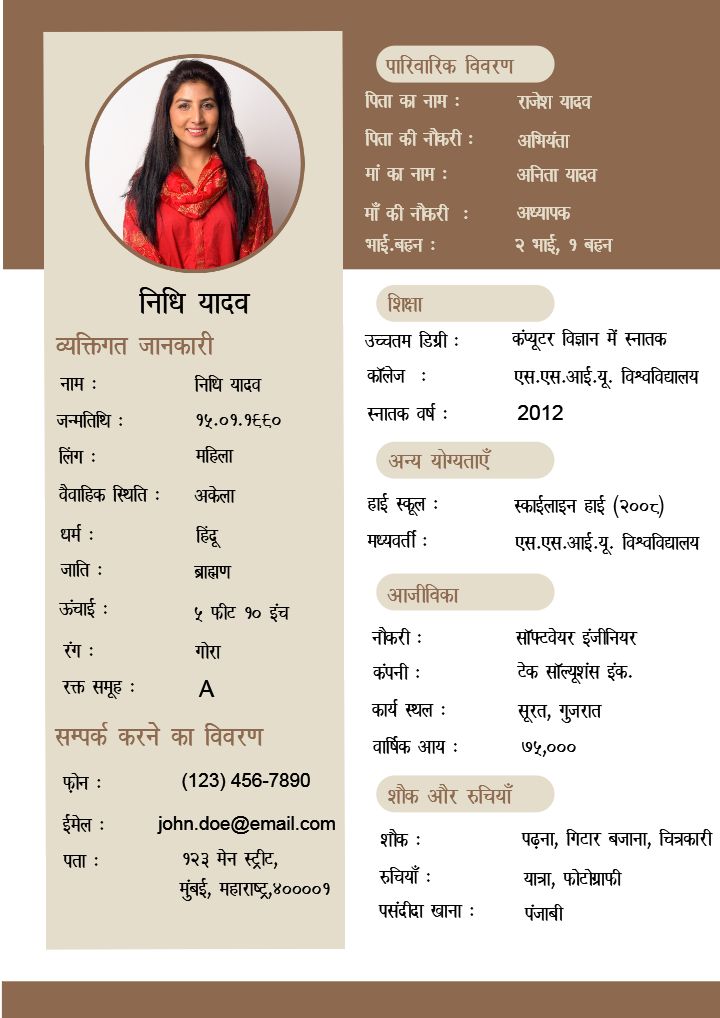 निधि यादव
व्यक्तिगत जानकारी
नाम : निधि यादव
जन्मतिथि : १५.०१.१९९०
लिंग : महिला
वैवाहिक स्थिति : अकेला
धर्म : हिंदू
जाति : ब्राह्मण
ऊंचाई : ५ फीट १० इंच
रंग : गोरा
रक्त समूह : A
सम्पर्क करने का विवरण
फ़ोन : (123) 456-7890
ईमेल : john.doe@email.com
पता : १२३ मेन स्ट्रीट,
मुंबई, महाराष्ट्र,४००००१
पारिवारिक विवरण
पिता का नाम : राजेश यादव
पिता की नौकरी : अभियंता
मां का नाम : अनिता यादव
माँ की नौकरी : अध्यापक
भाई.बहन : २ भाई, १ बहन
शिक्षा
उच्चतम डिग्री : कंप्यूटर विज्ञान में स्नातक
कॉलेज : एस.एस.आई.यू. विश्वविद्यालय
स्नातक वर्ष : 2012
अन्य योग्यताएँ
हाई स्कूल : स्काईलाइन हाई (२००८)
मध्यवर्ती : एस.एस.आई.यू. विश्वविद्यालय
आजीविका
नौकरी : सॉफ्टवेयर इंजीनियर
कंपनी : टेक सॉल्यूशंस इंक.
कार्य स्थल : सूरत, गुजरात
वार्षिक आय : ७५,०००
शौक और रुचियाँ
शौक : पढ़ना, गिटार बजाना, चित्रकारी
रुचियाँ : यात्रा, फोटोग्राफी
पसंदीदा खाना : पंजाबी